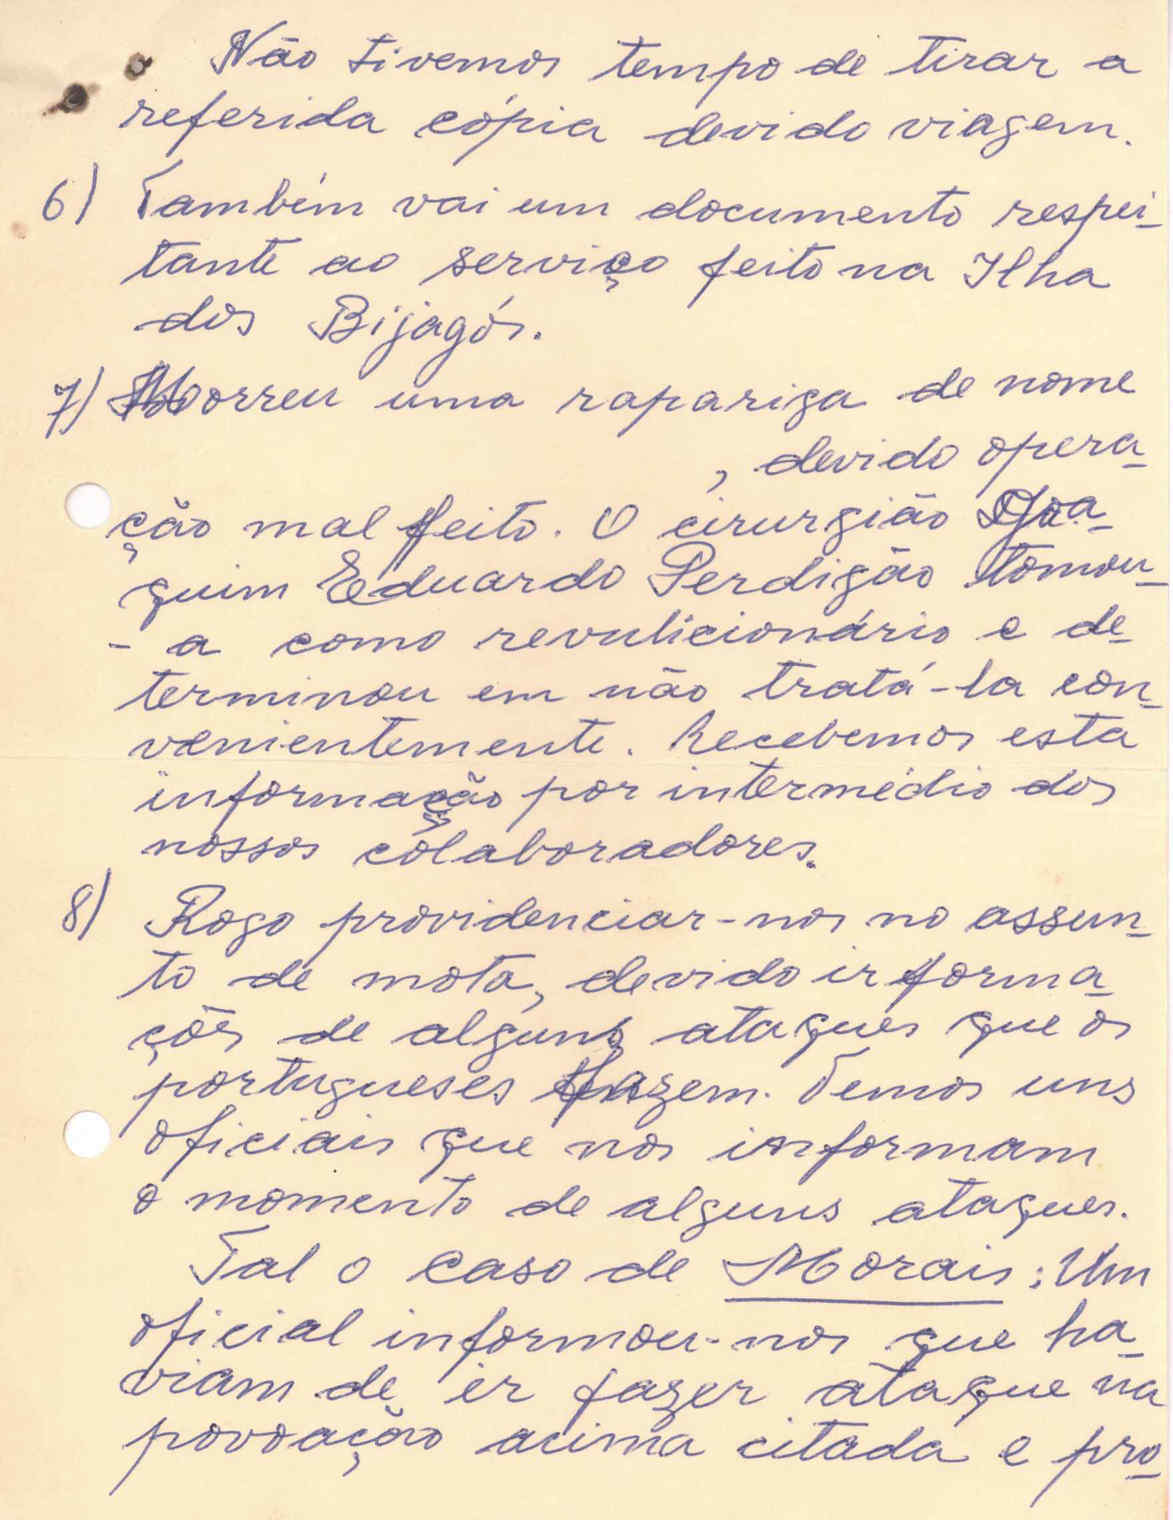 Não tivemos tempo de tirar a
referida cópia devido viagem.
6) Também vai um documento respei-
tante ao serviço feito na Ilha
dos Bijagós.
7) Morreu uma rapariga de nome
, devido opera-
ção mal feito. O cirurgião Joa-
quim Eduardo Perdigão tomou-
-a como revulicionário e de-
terminou em não tratá-la con-
venientemente. Recebemos esta
informação por intermédio dos
nossos colaboradores.
8) Rogo providenciar-nos no assun-
to de mota, devido informa-
ções de alguns ataques que os
portugueses fazem. Temos uns
oficiais que nos informam
o momento de alguns ataques.
Tal o caso de Morais: Um
oficial informou-nos que ha-
viam de ir fazer ataque na
povoação acima citada e pro-